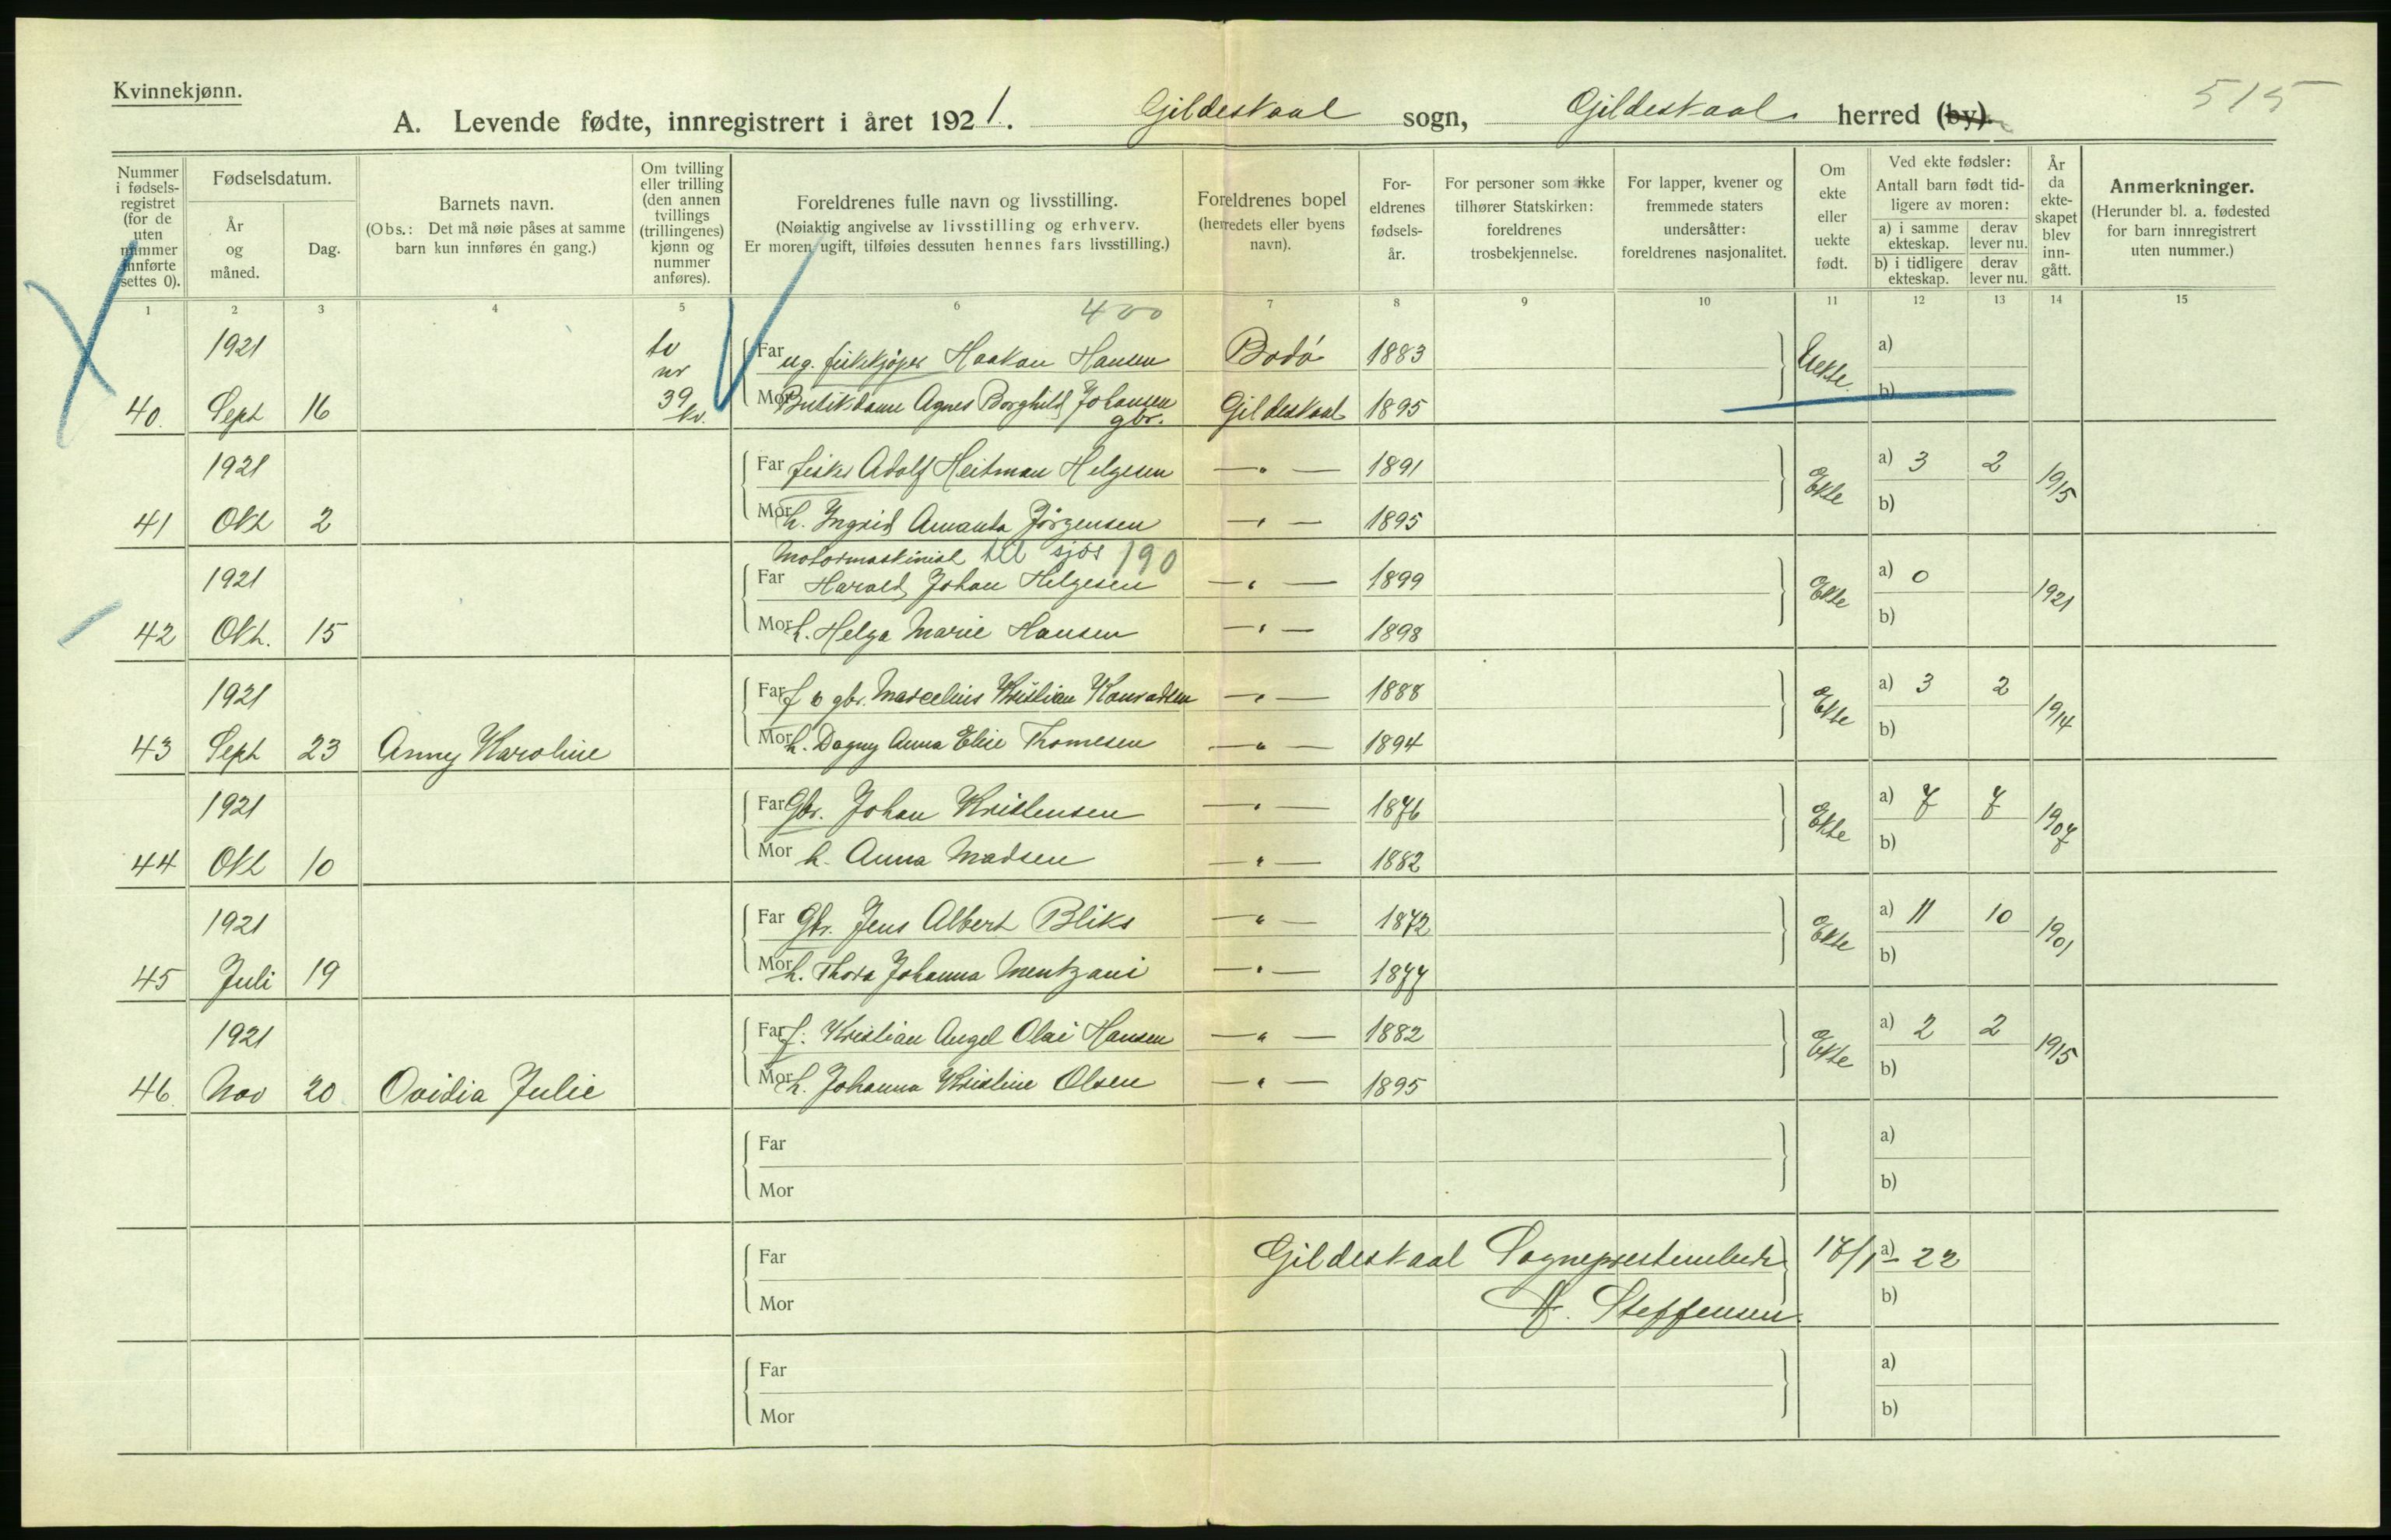 Kvinnekjønn.
515
A. Levende fødte, innregistrert i året 1921. Gildeskaal sogn, Gildeskaal herred (by).
Nummer i fødsels-registret (for de uten nummer innførte settes 0).
Fødselsdatum.
År og måned.
Dag.
Barnets navn.
(Obs.: Det må nøie påses at samme barn kun innføres én gang.)
Om tvilling eller trilling (den annen tvillings (trillingenes) kjønn og nummer anføres).
Foreldrenes fulle navn og livsstilling.
(Nøiaktig angivelse av livsstilling og erhverv. Er moren ugift, tilføies dessuten hennes fars livsstilling.)
Foreldrenes bopel (herredets eller byens navn).
For-eldrenes fødsels-år.
For personer som ikke tilhører Statskirken: foreldrenes trosbekjennelse.
For lapper, kvener og fremmede staters undersåtter: foreldrenes nasjonalitet.
Om ekte eller uekte født.
Ved ekte fødsler: Antall barn født tid-ligere av moren:
a) i samme ekteskap. derav lever nu.
b) i tidligere ekteskap. derav lever nu.
År da ekte-skapet blev inn-gått.
Anmerkninger.
(Herunder bl. a. fødested for barn innregistrert uten nummer.)
1 2 3 4 5 6 7 8 9 10 11 12 13 14 15
400
1921 tv nr Far ug. fiskekjøper Haakon Hansen Bodø 1883 Uekte. a)
40. Sept 16 39 kv. Mor Butikdame Agnes Borghild Johansen gbr. Gildeskaal 1895 b)
1921 Far fisker Adolf Heitman Helgesen —„— 1891 Ekte a) 3 2 1915
41 Okt 2 Mor h. Ingrid Amanda Jörgensen —„— 1895 b)
Motormaskinist til sjøs 190
1921 Far Harald Johan Helgesen —„— 1899 Ekte a) 0 1921
42 Okt. 15 Mor h. Helga Marie Hansen —„— 1898 b)
1921 Far f o gbr. Marcelius Kristian Konradsen —„— 1888 Ekte a) 3 2 1914
43 Sept 23 Anny Karoline Mor h. Dagny Anna Elise Thomesen —„— 1894 b)
1921 Far Gbr. Johan Kristensen —„— 1876 Ekte a) 7 7 1907
44 Okt 10 Mor h. Anna Madsen —„— 1882 b)
1921 Far Gbr. Jens Albert Bliks —„— 1872 Ekte a) 11 10 1901
45 Juli 19 Mor h. Thora Johanna Mentzoni —„— 1877 b)
1921 Far f. Kristian Angel Olai Hansen —„— 1882 Ekte a) 2 2 1915
46. Nov 20 Ovidia Julie Mor h. Johanna Kristine Olsen —„— 1895 b)
Far a)
Mor b)
Far Gildeskaal Sogneprestembede 17/1 a) - 22
Mor Steffensen. b)
Far a)
Mor b)